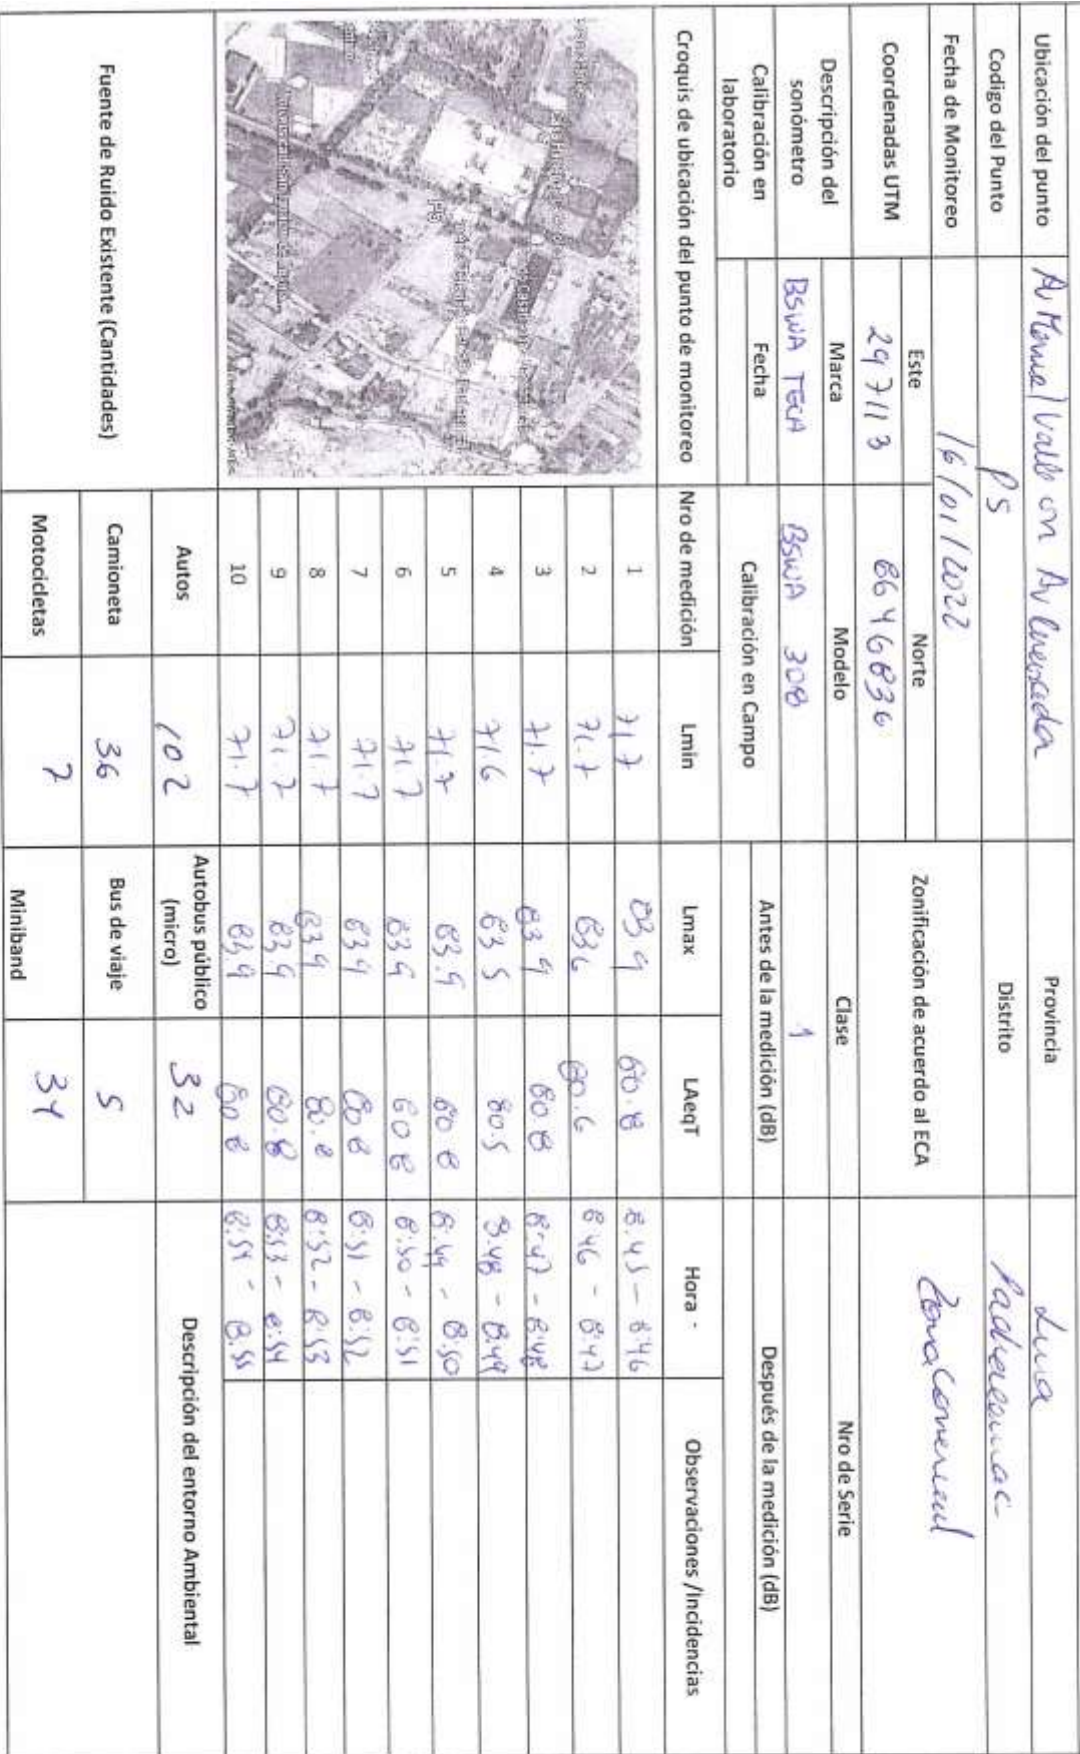 Ubicación del punto Av Manuel Valle con Av Cruceda Provincia Lima
Codigo del Punto P5 Distrito Pachacamac
Fecha de Monitoreo 16/01/2022 Zonificación de acuerdo al ECA Zona Comercial
Coordenadas UTM Este Norte
297113 8646836
Descripción del sonómetro Marca Modelo Clase Nro de Serie
BSWA TECH BSWA 308 1
Calibración en laboratorio Fecha Calibración en Campo Antes de la medición (dB) Después de la medición (dB)
Croquis de ubicación del punto de monitoreo Nro de medición Lmin Lmax LAeqT Hora - Observaciones /Incidencias
1 71.7 83.9 80.8 8:45 - 8:46
2 71.7 83.6 80.6 8:46 - 8:47
3 71.7 83.9 80.8 8:47 - 8:48
4 71.6 83.5 80.5 8:48 - 8:49
5 71.7 83.9 80.8 8:49 - 8:50
6 71.7 83.9 80.8 8:50 - 8:51
7 71.7 83.9 80.8 8:51 - 8:52
8 71.7 83.9 80.8 8:52 - 8:53
9 71.7 83.9 80.8 8:53 - 8:54
10 71.7 83.9 80.8 8:54 - 8:55
P5
Fuente de Ruido Existente (Cantidades) Autos 102 Autobus público (micro) 32 Descripción del entorno Ambiental
Camioneta 36 Bus de viaje 5
Motocicletas 7 Miniband 34